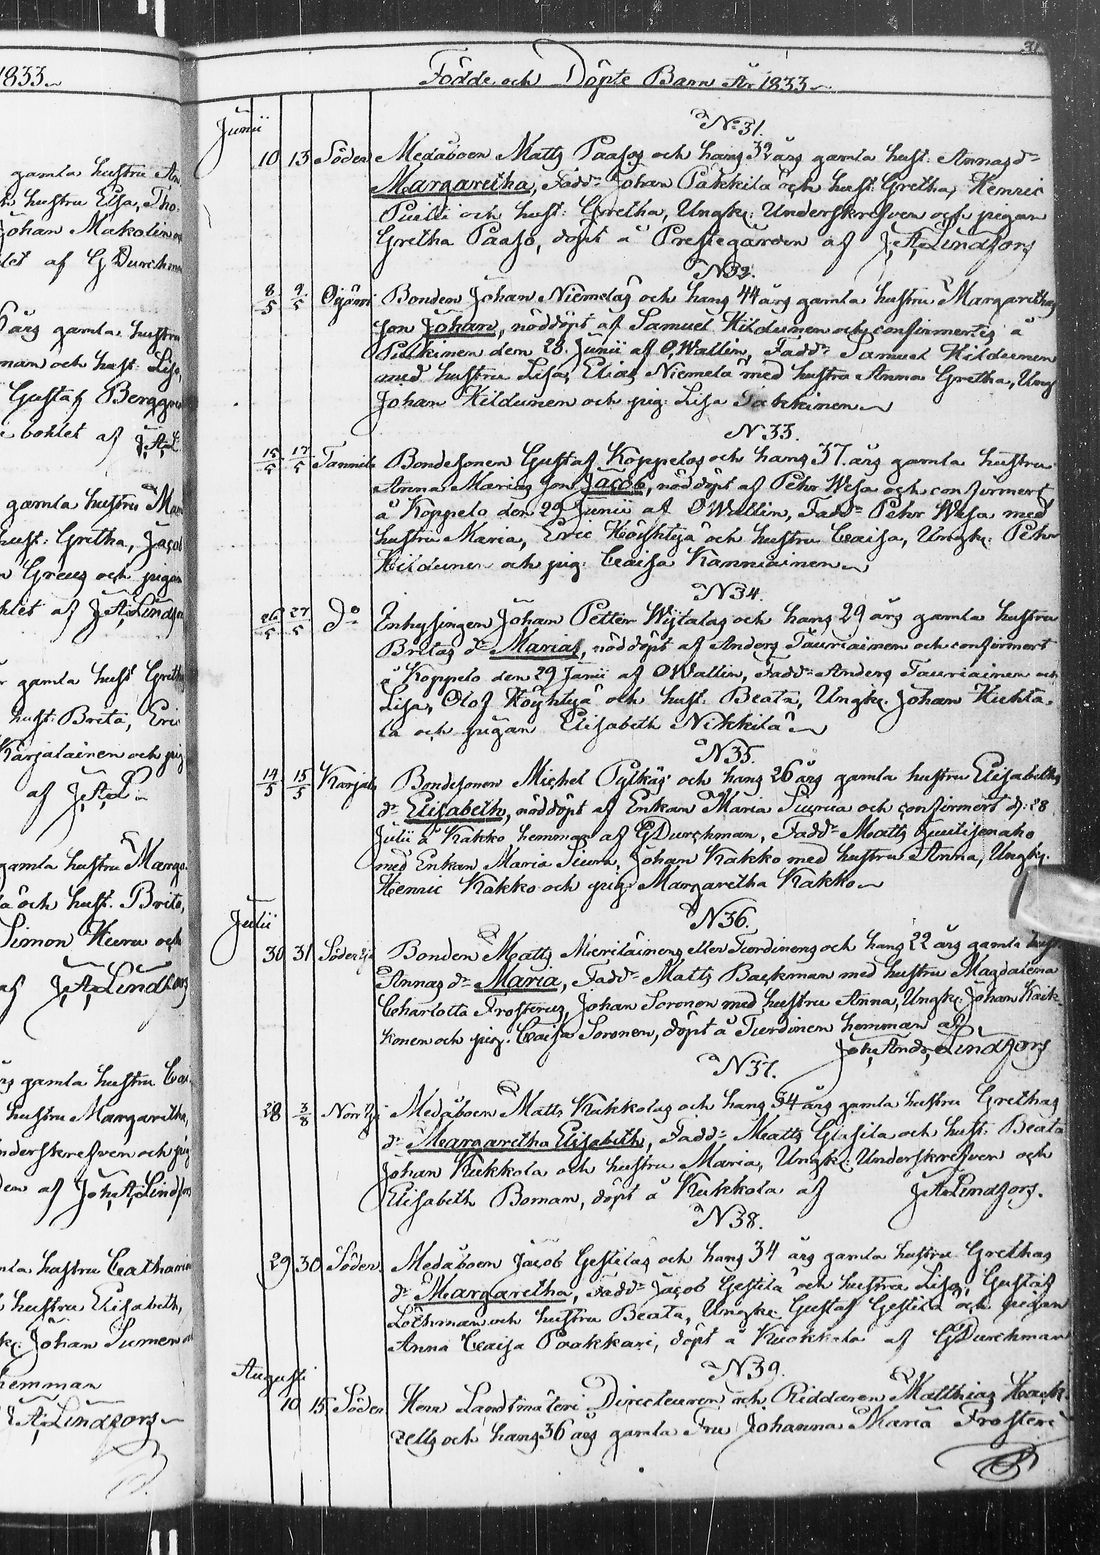 1833
gamla hustru An
hustru Elsa, Tho
Johan Makolin
af G Durchman
årg gamla hustru
man och hust. Lisa,
Gustaf Berggren
bohlet af J.A.L.
gamla hustru Mar
hust: Gretha, Jacob
Greus och pigan
af J.A. Lindfors
gamla hust Gretha
hust: Brita, Eric
Karjalainen och pig
af J.A.L.
gamla hustru Marga
och hust. Brita,
Simon Kuru och
af J.A. Lindfors
gamla hustru Ca
hustru Margaretha,
Underskrefven och pig
af Joh.A. Lindfors
gamla hustru Catharina
hustru Elisabeth,
Johan Sumen
hemman
J.A. Lindfors
31
Födde och Döpte Barn År 1833
Junii
N:31.
10 13 Söder Medåboen Matts Paasos och hans 32 års gamla hust: Annas d:r
Margaretha, Fadd: Johan Pakkila och hust: Gretha, Henric
och hust: Gretha, Ungk: Underskrefven och pigan
Gretha Paaso, döpt å Prestegården af J.A. Lindfors
N32.
8/5 9/5 Bonden Johan Niemeläs och hans 44 års gamla hustru Margarethas
son Johan, nöddöpt af Samuel Kildunen och confirmerts å
Pulkkinen den 28 Junii af O Wallin, Fadd: Samuel Kildunen
med hustru Lisa, Elias Niemelä med hustru Anna Gretha, Ung
Johan Kildunen och pig: Lisa Takkinen
N33.
15/5 17/5 Tannila Bondesonen Gustaf Koppelos och hans 37 års gamla hustru
Anna Marias son Jacob, nöddöpt af Pehr Wesa och confirmert
å Koppelo den 29 Junii af O Wallin, Fadd: Pehr Wesa med
hustru Maria, Eric Höyhtyä och hustru Caisa, Ungk: Pehr
Kildunen och pig: Caisa Kanniainen
N34.
26/5 27/5 D:o Inhysingen Johan Petter Wijtalas och hans 29 års gamla hustru
Britas d:r Maria, nöddöpt af Anders Tauriainen och confirmert
å Koppelo den 29 Junii af O Wallin, Fadd: Anders Tauriainen och
Lisa, Olof Höyhtyä och hust: Beata, Ungk: Johan Kuhta-
la och pigan Elisabeth Nikkilä
N35.
14/5 15/5 Karjal Bondesonen Michel Pylkäs och hans 26 års gamla hustru Elisabeths
d:r Elisabeth, nöddöpt af Enkan Maria Siurua och confirmert d: 28
Julii å Kakko hemman af G Durchman, Fadd: Matts
med Enkan Maria Siurua, Johan Kakko med hustru Anna, Ungk:
Henric Kakko och pig: Margaretha Kakko
Julii
N36.
30 31 Söder Bonden Matts Mieriläinens eller Turdinens och hans 22 års gamla hust
Annas d:r Maria, Fadd: Matts Backman med hustru Magdalena
Charlotta Frosterus, Johan Soronen med hustru Anna, Ungk: Johan Kaik-
konen och pig: Caisa Soronen, döpt å Turdinen hemman af
Joh. Andr. Lindfors
N37.
28 3/8 Norr Medåboen Matts Kukkolas och hans 34 års gamla hustru Grethas
d:r Margaretha Elisabeth, Fadd: Matts och hust: Beata
Johan Kukkola och hustru Maria, Ungk: Underskrefven och
Elisabeth Boman, döpt å Kukkola af J.A. Lindfors.
N38.
29 30 Söder Medåboen Jacob Gestilas och hans 34 års gamla hustru Grethas
d:r Margaretha, Fadd: Jacob Gestila och hustru Lisa, Gustaf
Löthman och hustru Beata, Ungk: Gustaf Gestila och pigan
Anna Caisa Paakkari, döpt å Kuckkola af G Durchman
Augusti
N39.
10 15 Söder Herr Landtmäteri Directeuren och Riddaren Matthias Hack-
zells och hans 36 års gamla Fru Johanna Maria Frosteri